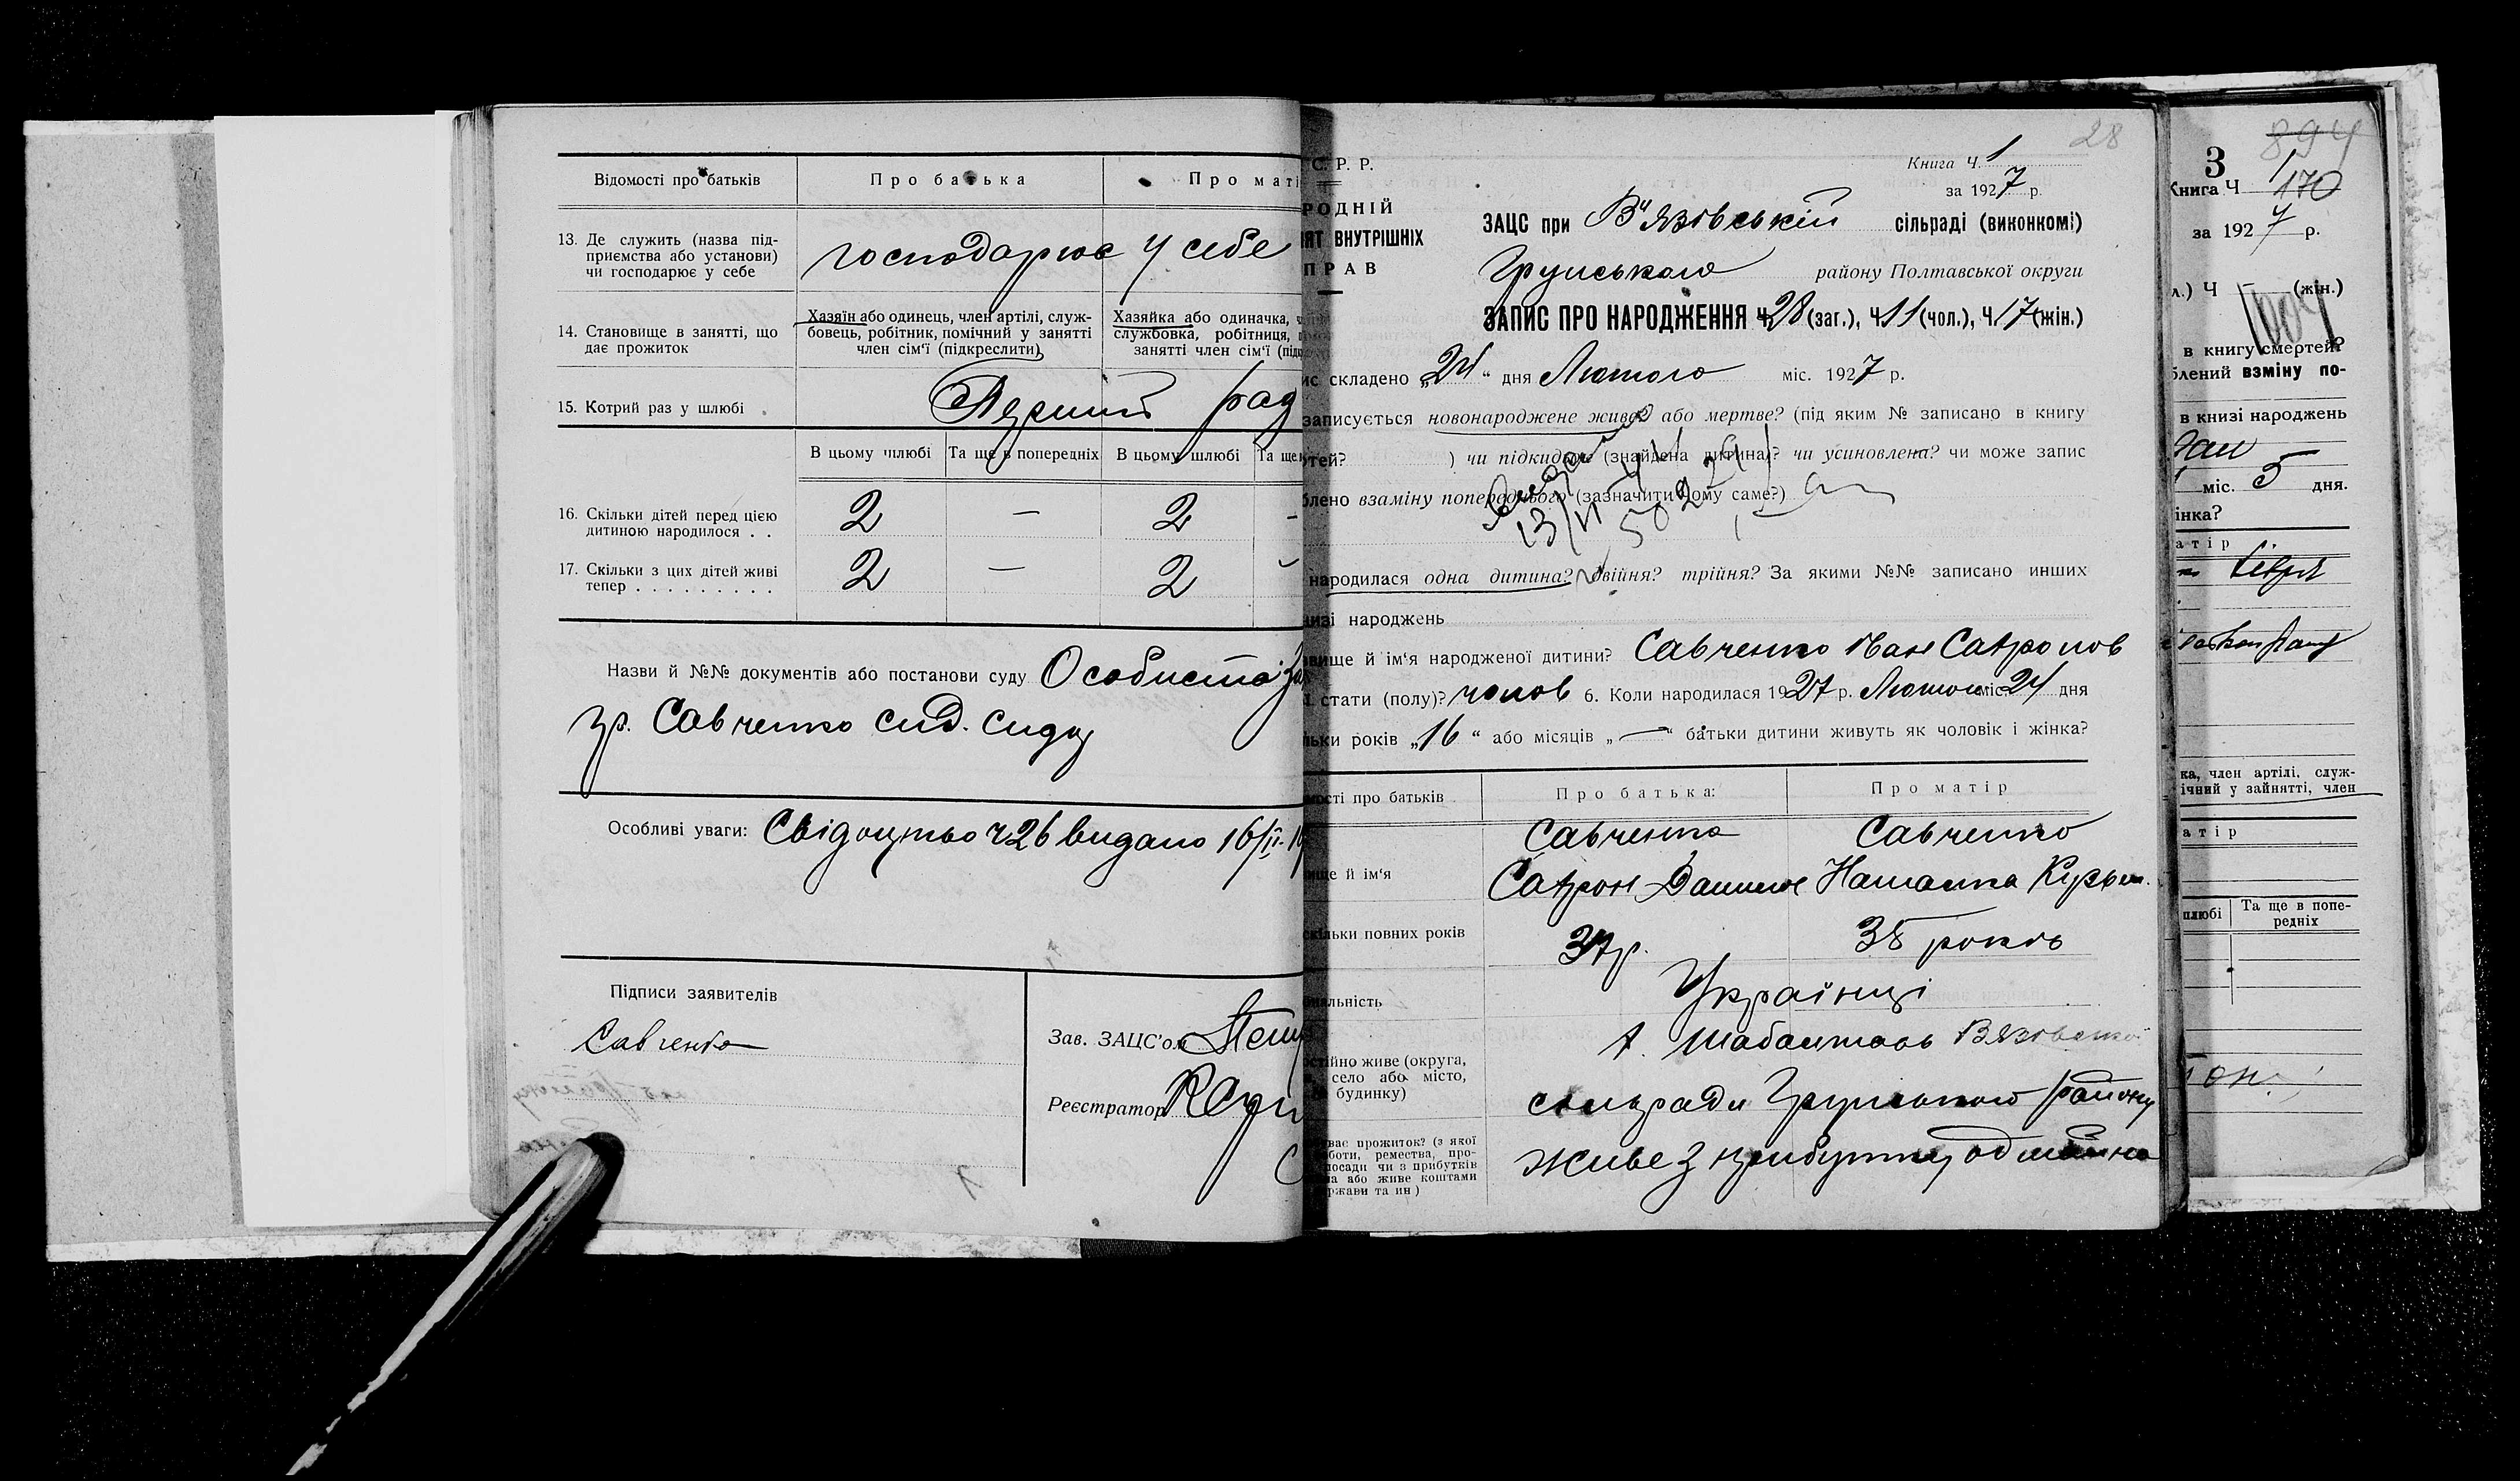 Відомості про батьків
Про батька
Про маті
13. Де служить (назва під-
приємства або установи)
чи господарює у себе
господарює у себе
14. Становище в занятті, що
дає прожиток
Хазяїн або одинець, член артілі, служ-
бовець, робітник, помічний у занятті
член сім'ї (підкреслити)
Хазяйка або одиначка, ч
службовка, робітниця,
занятті член сім'ї (підк
15. Котрий раз у шлюбі
Перший раз
В цьому шлюбі
Та ще в попередніх
В цьому шлюбі
Та ще
16. Скільки дітей перед цією
дитиною народилося . .
2 — 2 -
17. Скільки з цих дітей живі
тепер . . . . . . . . .
2 — 2
Назви й №№ документів або постанови суду Особиста
гр. Савченко
Особливі уваги: Свідоцтво ч 26 видано 16/II-
Підписи заявителів
Савченко
Зав. ЗАЦС'ом
Реєстратор
28
С. Р. Р.
РОДНІЙ
ЯТ ВНУТРІШНІХ
ПРАВ
Книга Ч. 1
за 1927 р.
ЗАЦС при В'язівській сільраді (виконкомі)
Грунського району Полтавської округи
ЗАПИС ПРО НАРОДЖЕННЯ Ч 28 (заг.), Ч 11 (чол.), Ч. 17 (жін.)
ис складено „24" дня Лютого міс. 1927 р.
записується новонароджене живе? або мертве? (під яким № записано в книгу
тей? ) чи підкидьок (знайдена дитина)? чи усиновлена? чи може запис
блено взаміну попереднього (зазначити чому саме?)
13/VI 50
народилася одна дитина? двійня? трійня? За якими №№ записано инших
низі народжень
звище й ім'я народженої дитини? Савченко Іван Сафронов
ї стати (полу)? чолов 6. Коли народилася 1927 р. Лютого міс. 24 дня
льки років „16" або місяців „—" батьки дитини живуть як чоловік і жінка?
мості про батьків
Про батька:
Про матір
ище й ім'я
Савченко
Сафрон Данилов
Савченко
Наталка Курьян.
скільки повних років
37 р.
38 років
нальність
Українці
остійно живе (округа,
село або місто,
будинку)
х. Шабалтаєв Вязівської
сільради Грунського району
уває прожиток? (з якої
боти, ремества, про-
посади чи з прибутків
на або живе коштами
ржави та ин)
живе з прибутку од майна
894
3
Книга Ч 1
170
за 1927 р.
л.) Ч (жін.)
в книгу смертей?
блений взміну по-
в книзі народжень
міс. 5 дня.
інка?
атір
ка, член артілі, служ-
ічний у зайнятті, член
атір
шлюбі
Та ще в попе-
редніх